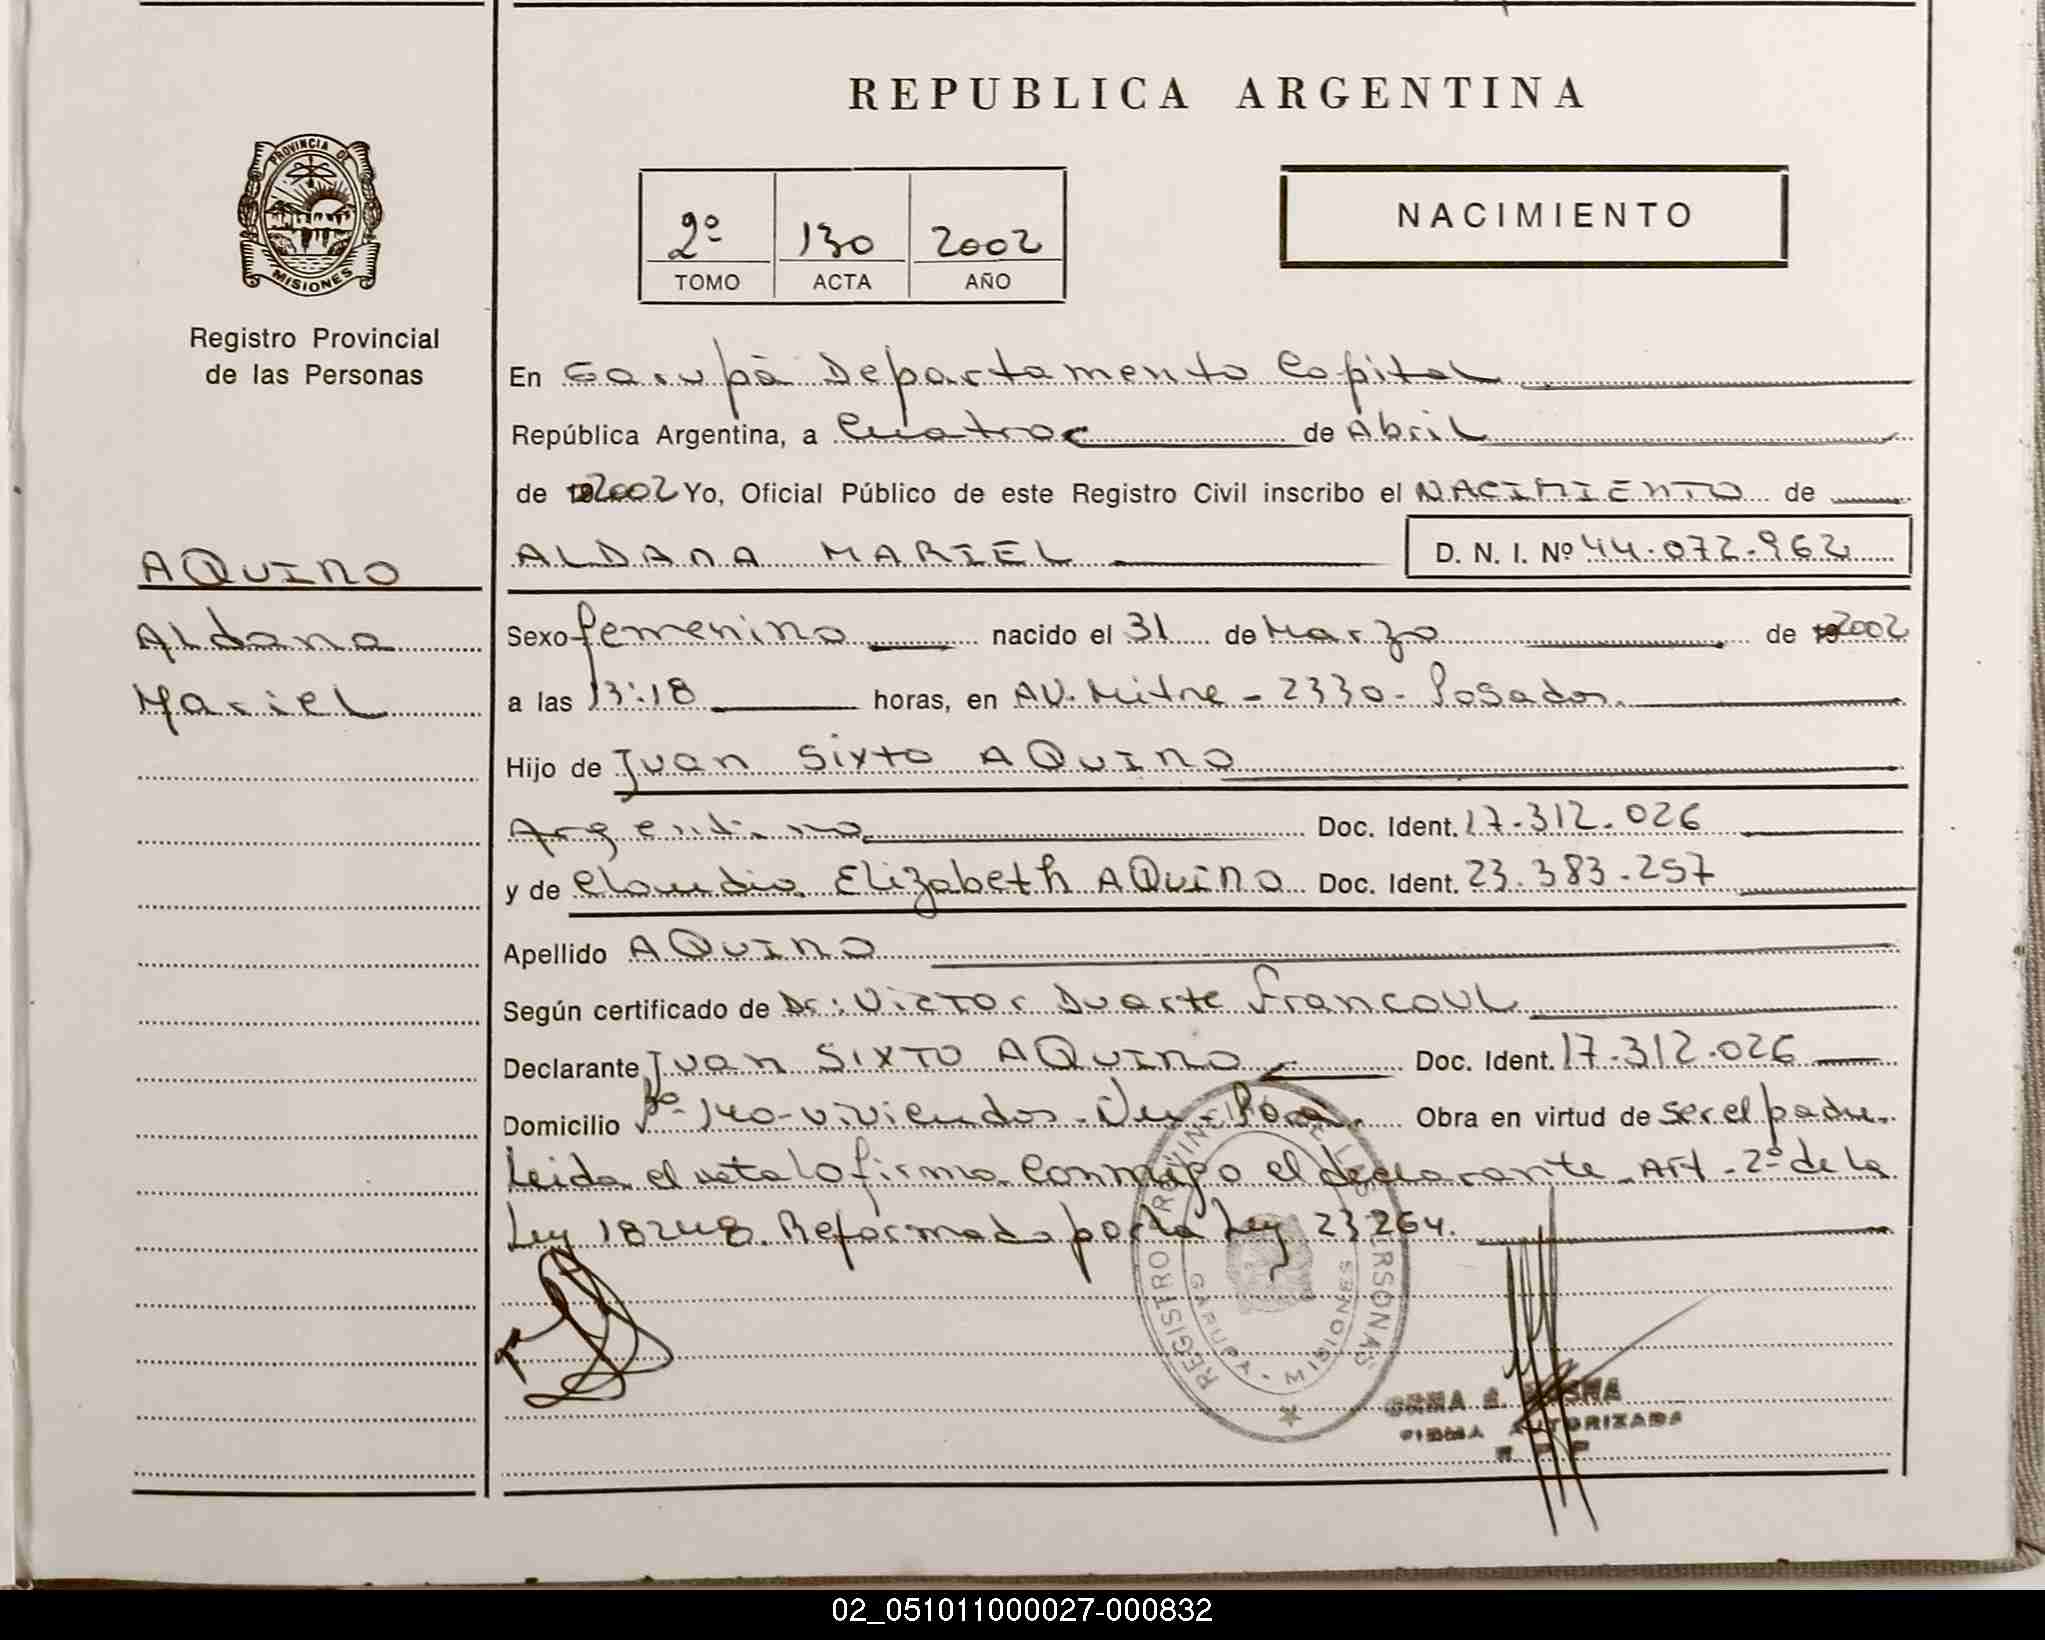 REPUBLICA ARGENTINA
PROVINCIA DE
MISIONES
Registro Provincial
de las Personas
2º 130 2002
TOMO ACTA AÑO
NACIMIENTO
En Garupá Departamento Capital
República Argentina, a Cuatro de Abril
de 2002 Yo, Oficial Público de este Registro Civil inscribo el NACIMIENTO de
ALDANA MARIEL D. N. I. Nº 44.072.962
AQUINO
Aldana
Mariel
Sexo femenino nacido el 31 de Marzo de 2002
a las 13:18 horas, en AV. Mitre - 2330 - Posadas.
Hijo de Juan Sixto AQUINO
Argentino Doc. Ident. 17.312.026
y de Claudia Elizabeth AQUINO Doc. Ident. 23.383.257
Apellido AQUINO
Según certificado de Dr: Victor Duarte Francoul
Declarante Juan SIXTO AQUINO Doc. Ident. 17.312.026
Domicilio Bº 140 viviendas Obra en virtud de ser el padre.
Leida el acta lo firma conmigo el declarante. Art - 2º de la
Ley 18248. Reformada por la Ley 23264.
REGISTRO PROVINCIAL DE LAS PERSONAS
GARUPA · MISIONES
FIRMA AUTORIZADA
02_051011000027-000832